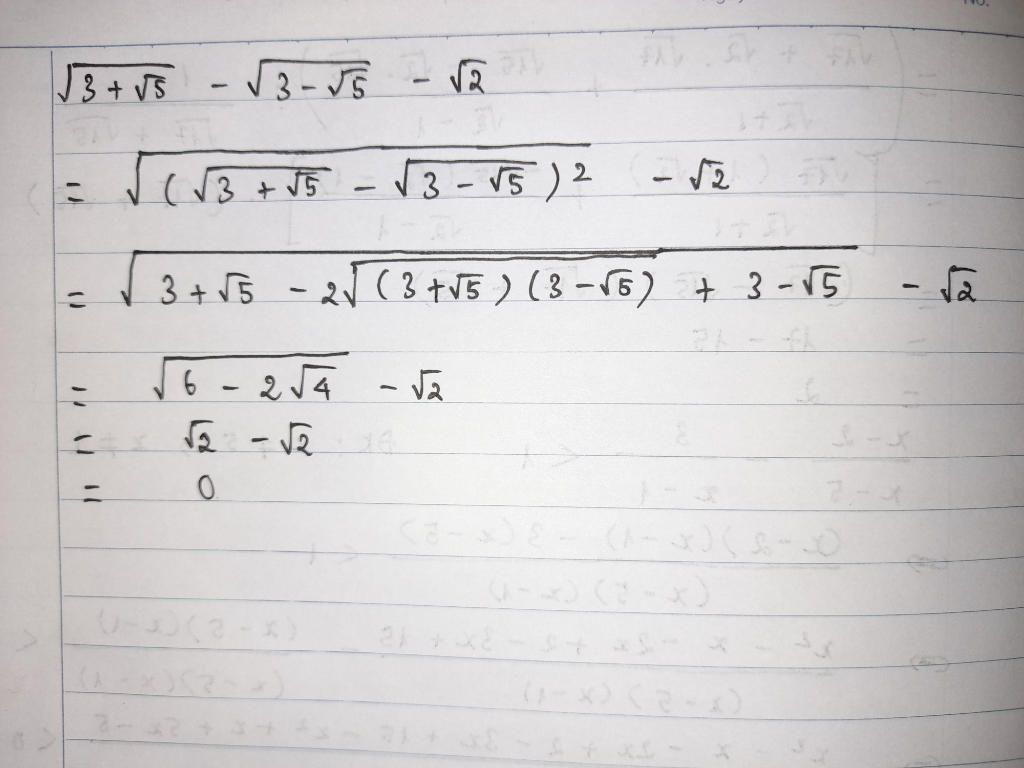 √(3 + √5) - √(3 - √5) - √2
= √((√(3 + √5) - √(3 - √5))²) - √2
= √(3 + √5 - 2√((3 + √5)(3 - √5)) + 3 - √5) - √2
= √(6 - 2√4) - √2
= √2 - √2
= 0